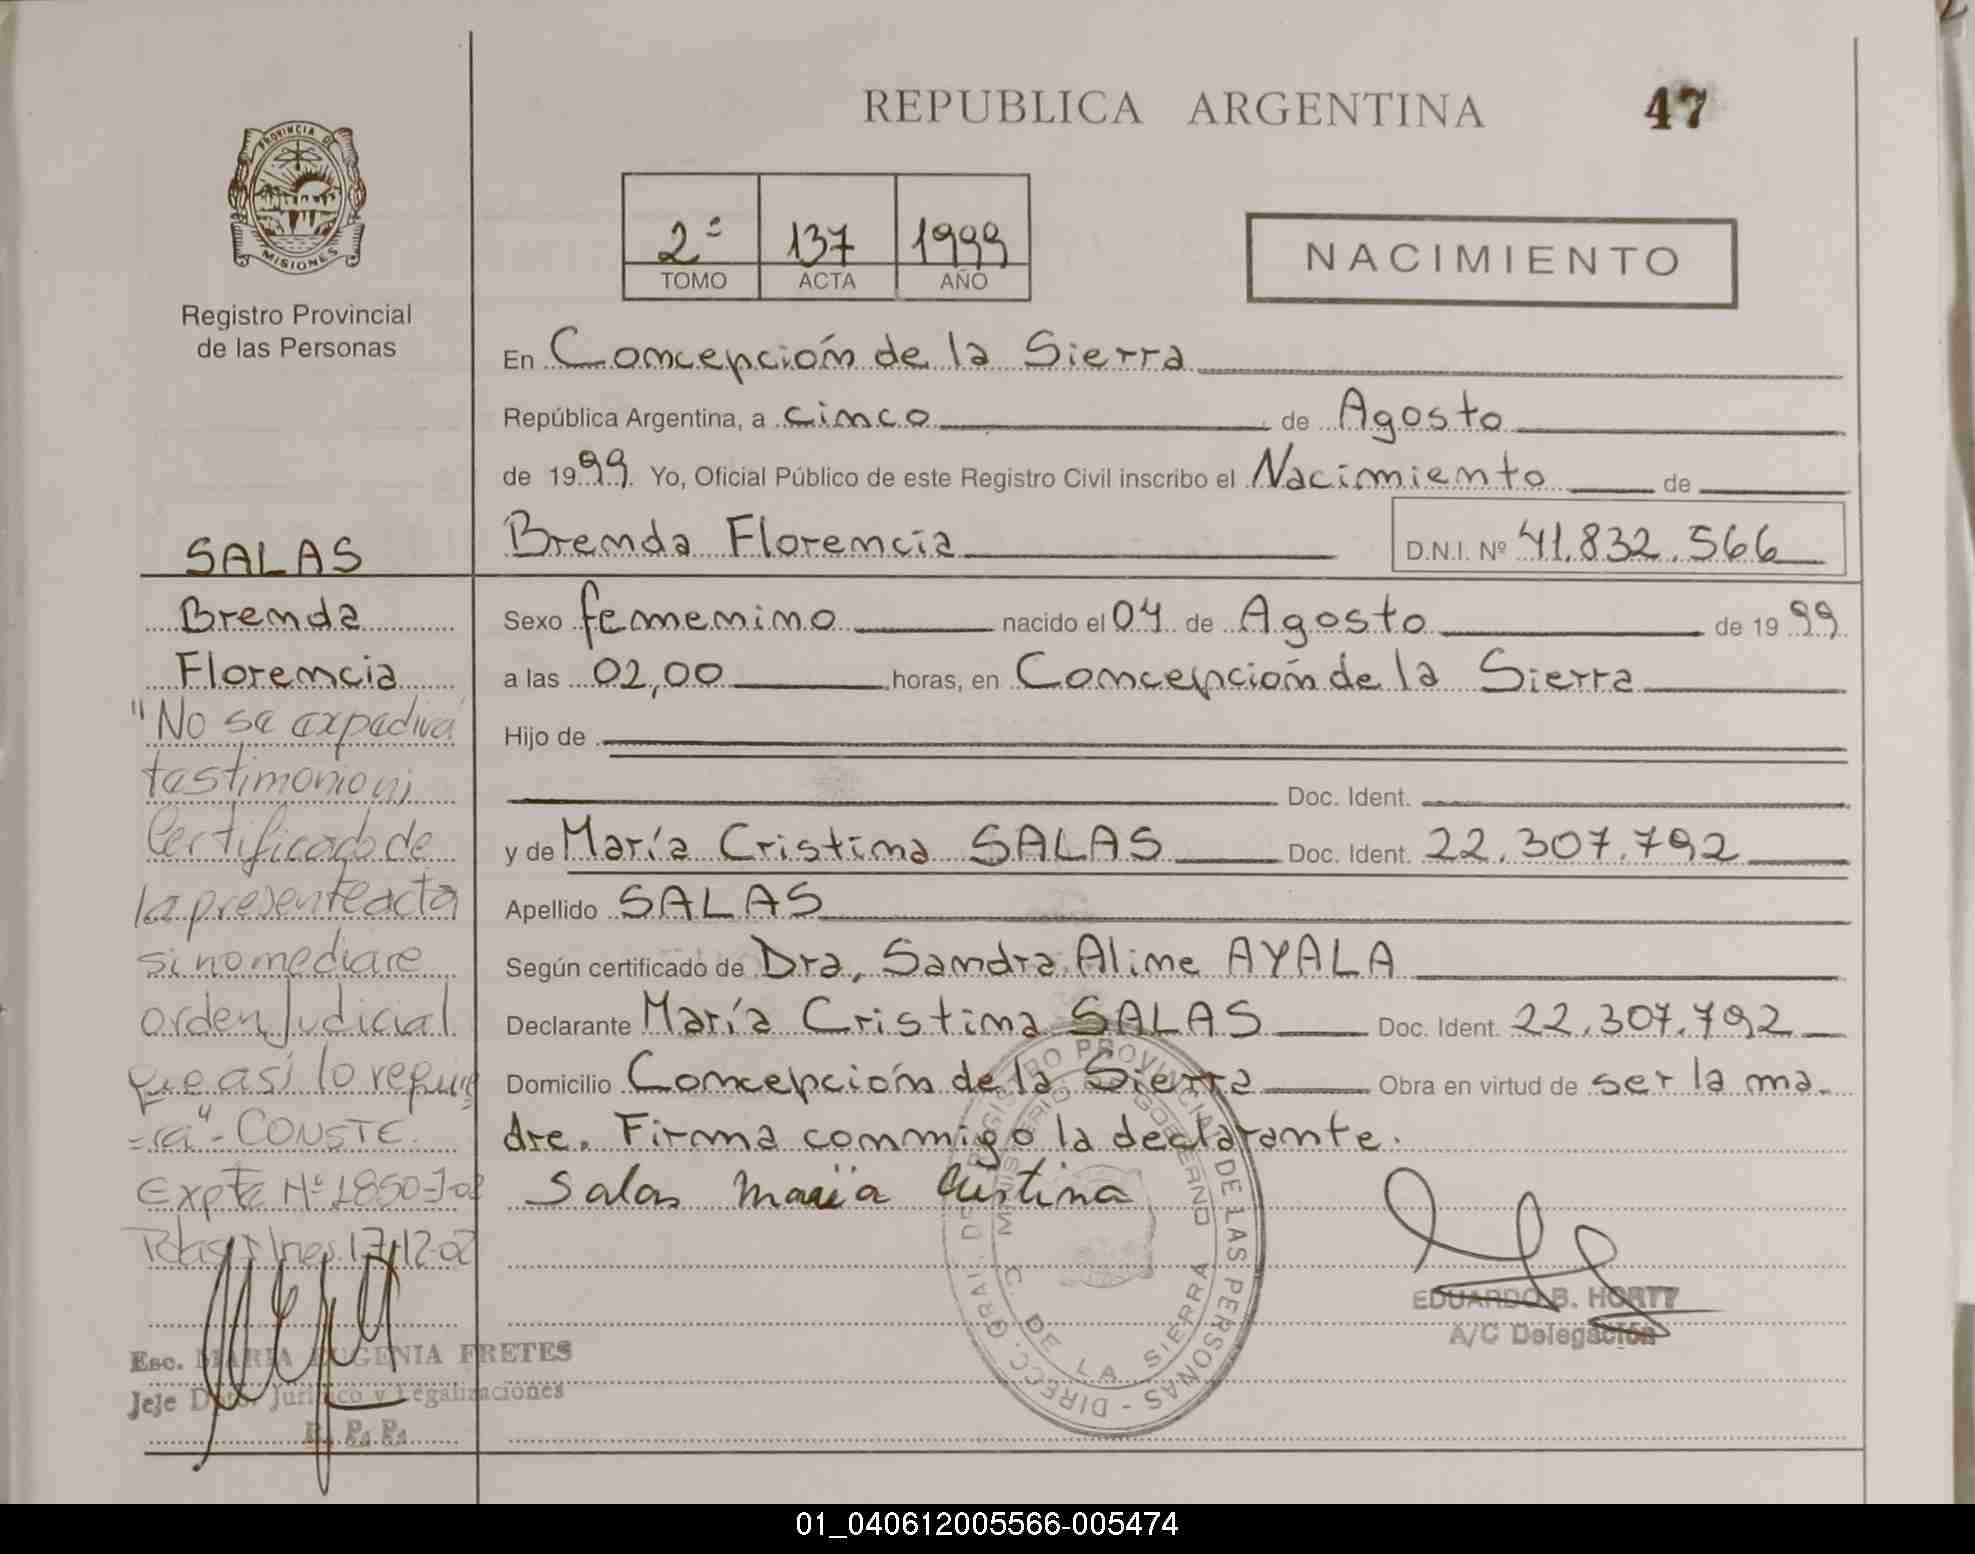 REPUBLICA ARGENTINA
47
PROVINCIA DE
MISIONES
Registro Provincial
de las Personas
2ª 137 1999
TOMO ACTA AÑO
NACIMIENTO
En Concepción de la Sierra
República Argentina, a cinco de Agosto
de 1999. Yo, Oficial Público de este Registro Civil inscribo el Nacimiento de
Brenda Florencia D.N.I. Nº 41.832.566
Sexo femenino nacido el 04 de Agosto de 1999
a las 02,00 horas, en Concepción de la Sierra
Hijo de
Doc. Ident.
y de María Cristina SALAS Doc. Ident. 22.307.792
Apellido SALAS
Según certificado de Dra, Sandra Aline AYALA
Declarante María Cristina SALAS Doc. Ident. 22.307.792
Domicilio Concepción de la Sierra Obra en virtud de ser la ma-
dre. Firma conmigo la declarante.
Salas María Cristina
SALAS
Brenda
Florencia
"No se expedirá
testimonio ni
Certificado de
la presente acta
si no mediare
orden Judicial
que así lo requie
-ra"- CONSTE.
Expte Nº 1850-J-02
Pdas Mnes. 17-12-02
Esc. MARIA EUGENIA FRETES
Jefe Dpto. Jurídico y Legalizaciones
R. P. P.
DIRECC. GRAL. DEL REGISTRO PROVINCIAL DE LAS PERSONAS -
MINISTERIO GOBIERNO
C. DE LA SIERRA
EDUARDO B. HORTT
A/C Delegación
01_040612005566-005474